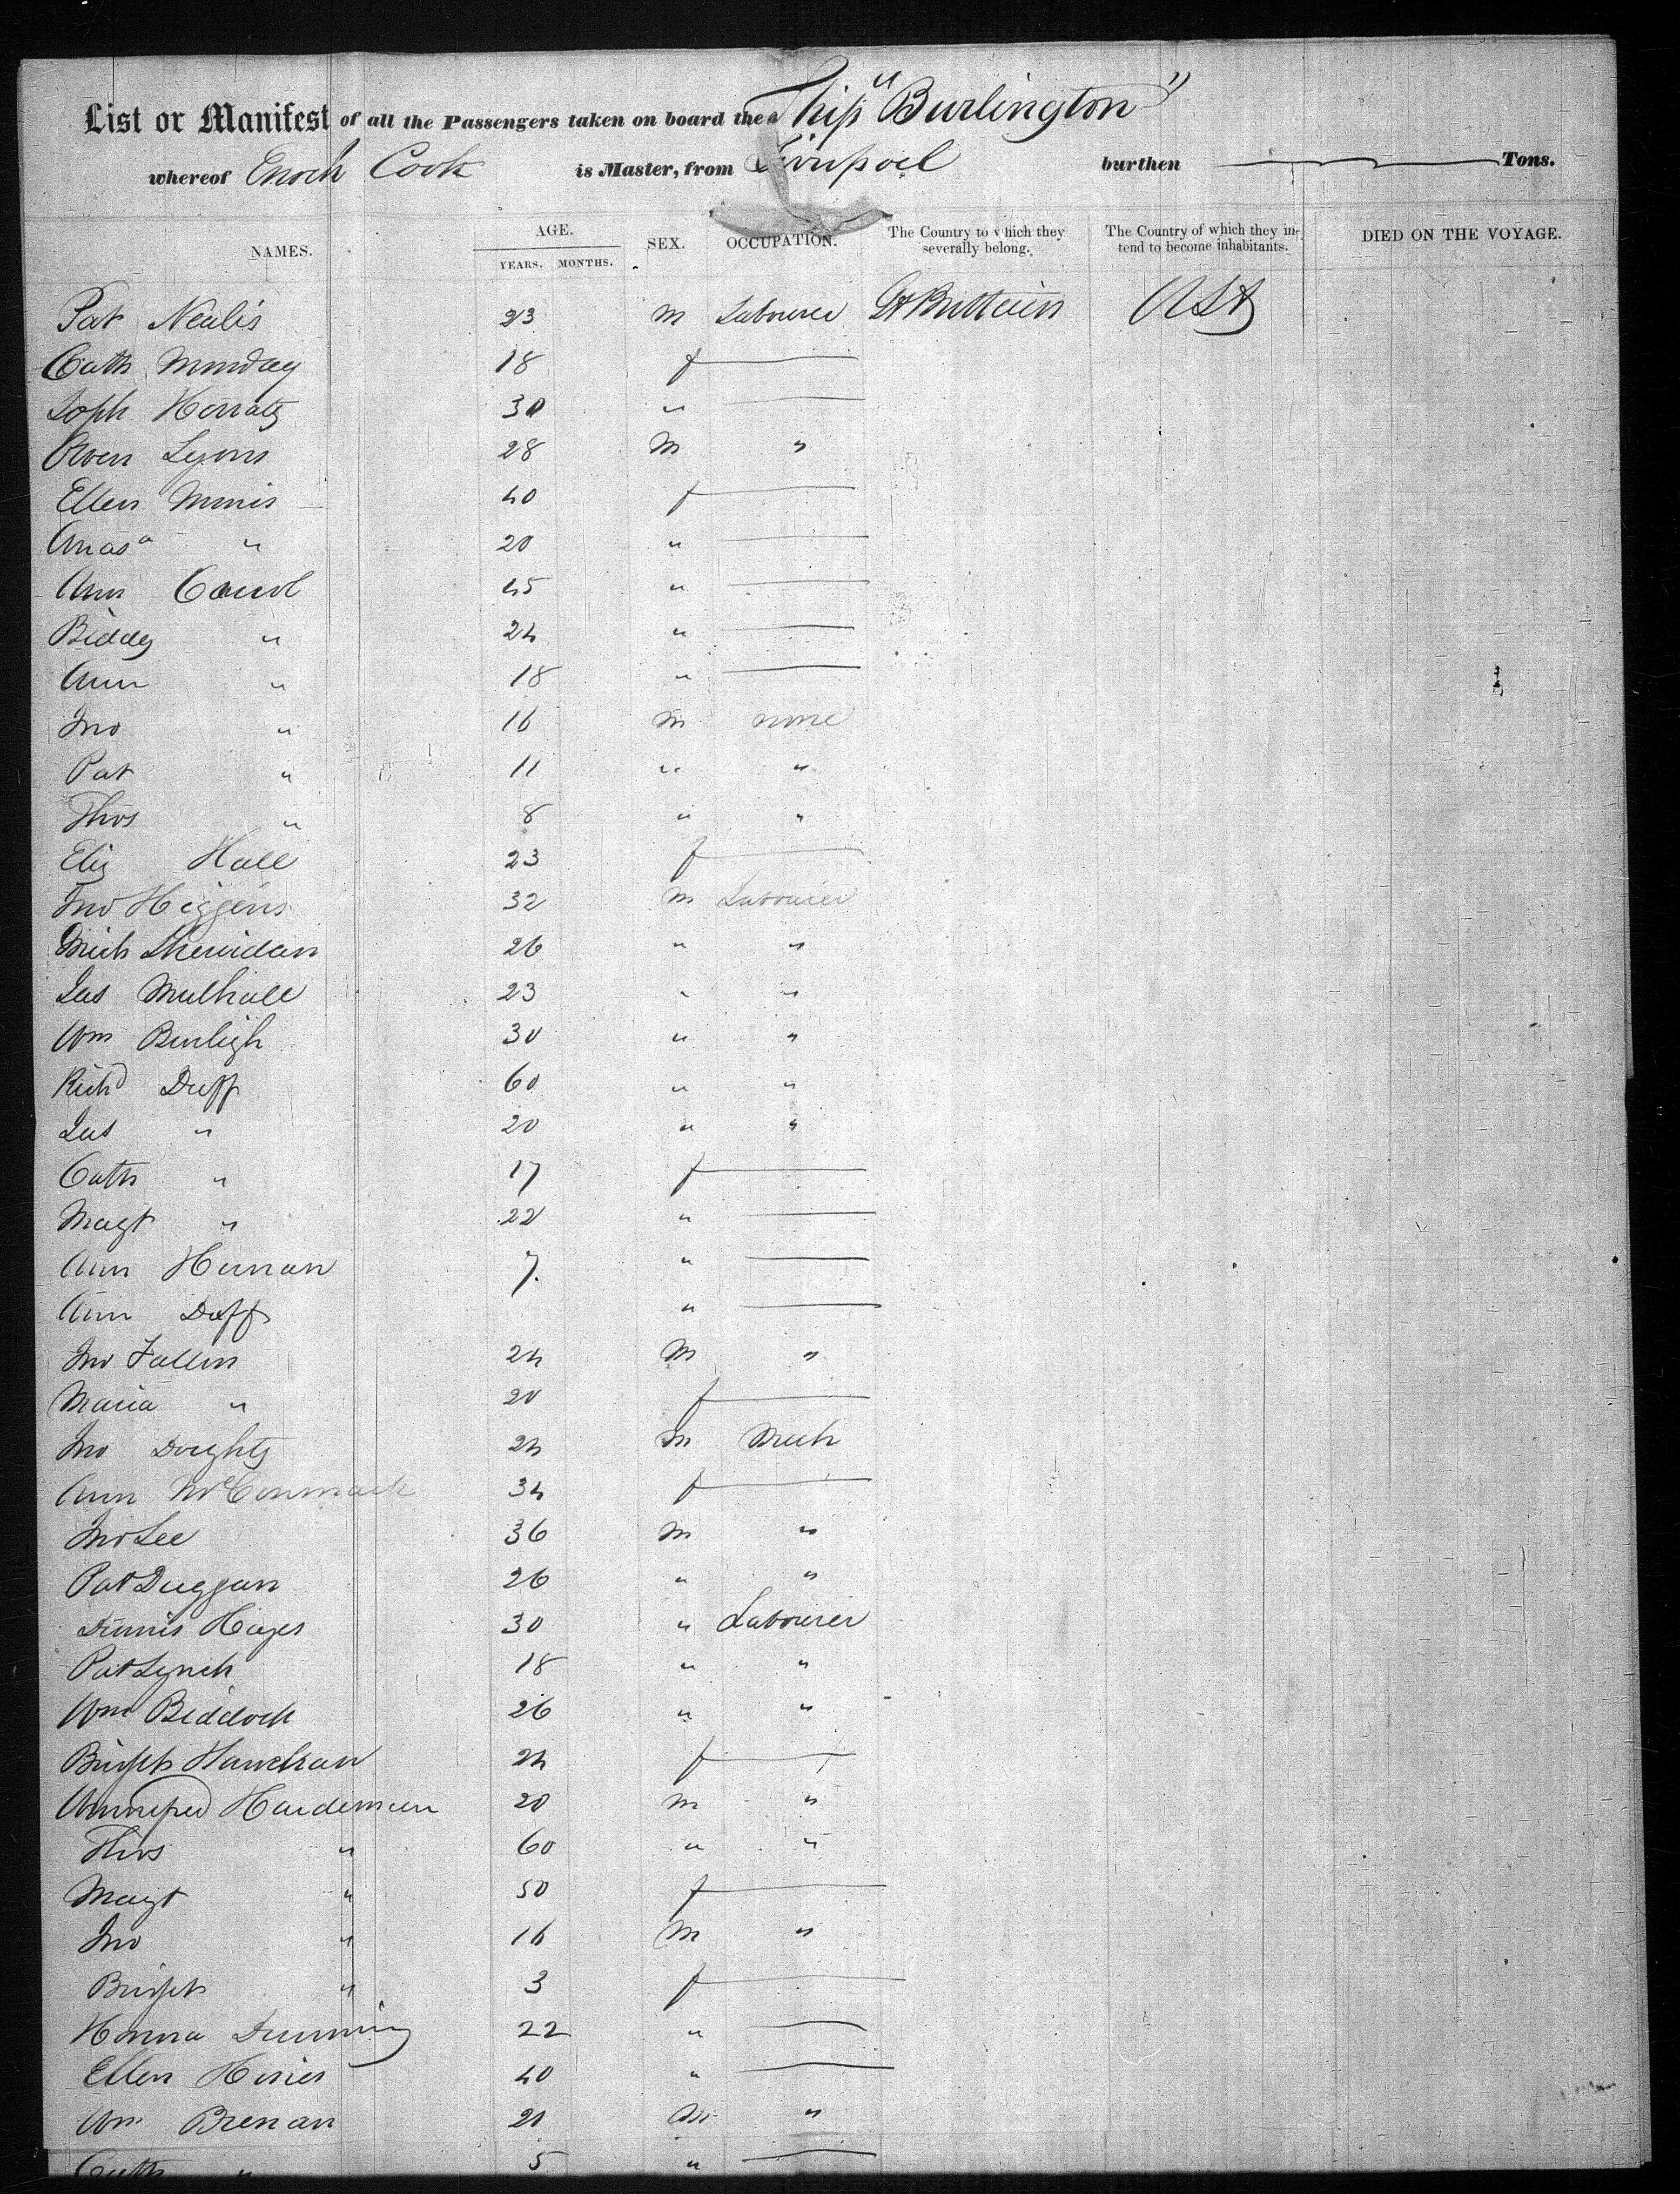 List or Manifest of all the Passengers taken on board the Ship "Burlington"
whereof Enoch Cook is Master, from Liverpool burthen Tons.
NAMES. AGE. YEARS. MONTHS. SEX. OCCUPATION. The Country to which they severally belong. The Country of which they intend to become inhabitants. DIED ON THE VOYAGE.
Pat Nealis 23 M Labourer Gt Brittain USA
Cath Munday 18 f
Soph 30 "
Owen Lyons 28 M "
Ellen 40 f
Anasa " 20 "
Ann Carrol 45 "
Biddy " 24 "
Ann " 18 "
Jno " 16 M none
Pat " 11 " "
Thos " 8 " "
Eliz Hall 23 f
Jno Higgins 32 M Labourer
Mich Sheridan 26 " "
Jas Mulhall 23 " "
Wm Burligh 30 " "
Richd Duff 60 " "
Jas " 20 " "
Cath " 17 f
Magt " 22 "
Ann 7. "
Ann Duff "
Jno Fallen 24 M "
Maria " 20 f
Jno Doughty 24 M Mech
Ann McConmack 34 f
Jno Lee 36 M "
Pat Duggan 26 " "
Dennis Hayes 30 " Labourer
Pat Lynch 18 " "
Wm Biddock 26 " "
Bridget Hanehran 24 f
Winnefred Hardiman 20 M "
Thos " 60 " "
Magt " 50 f
Jno " 16 M "
Bridget " 3 f
Honna Dunning 22 "
Ellen 40 "
Wm Brenan 21 M "
Cath " 5 "